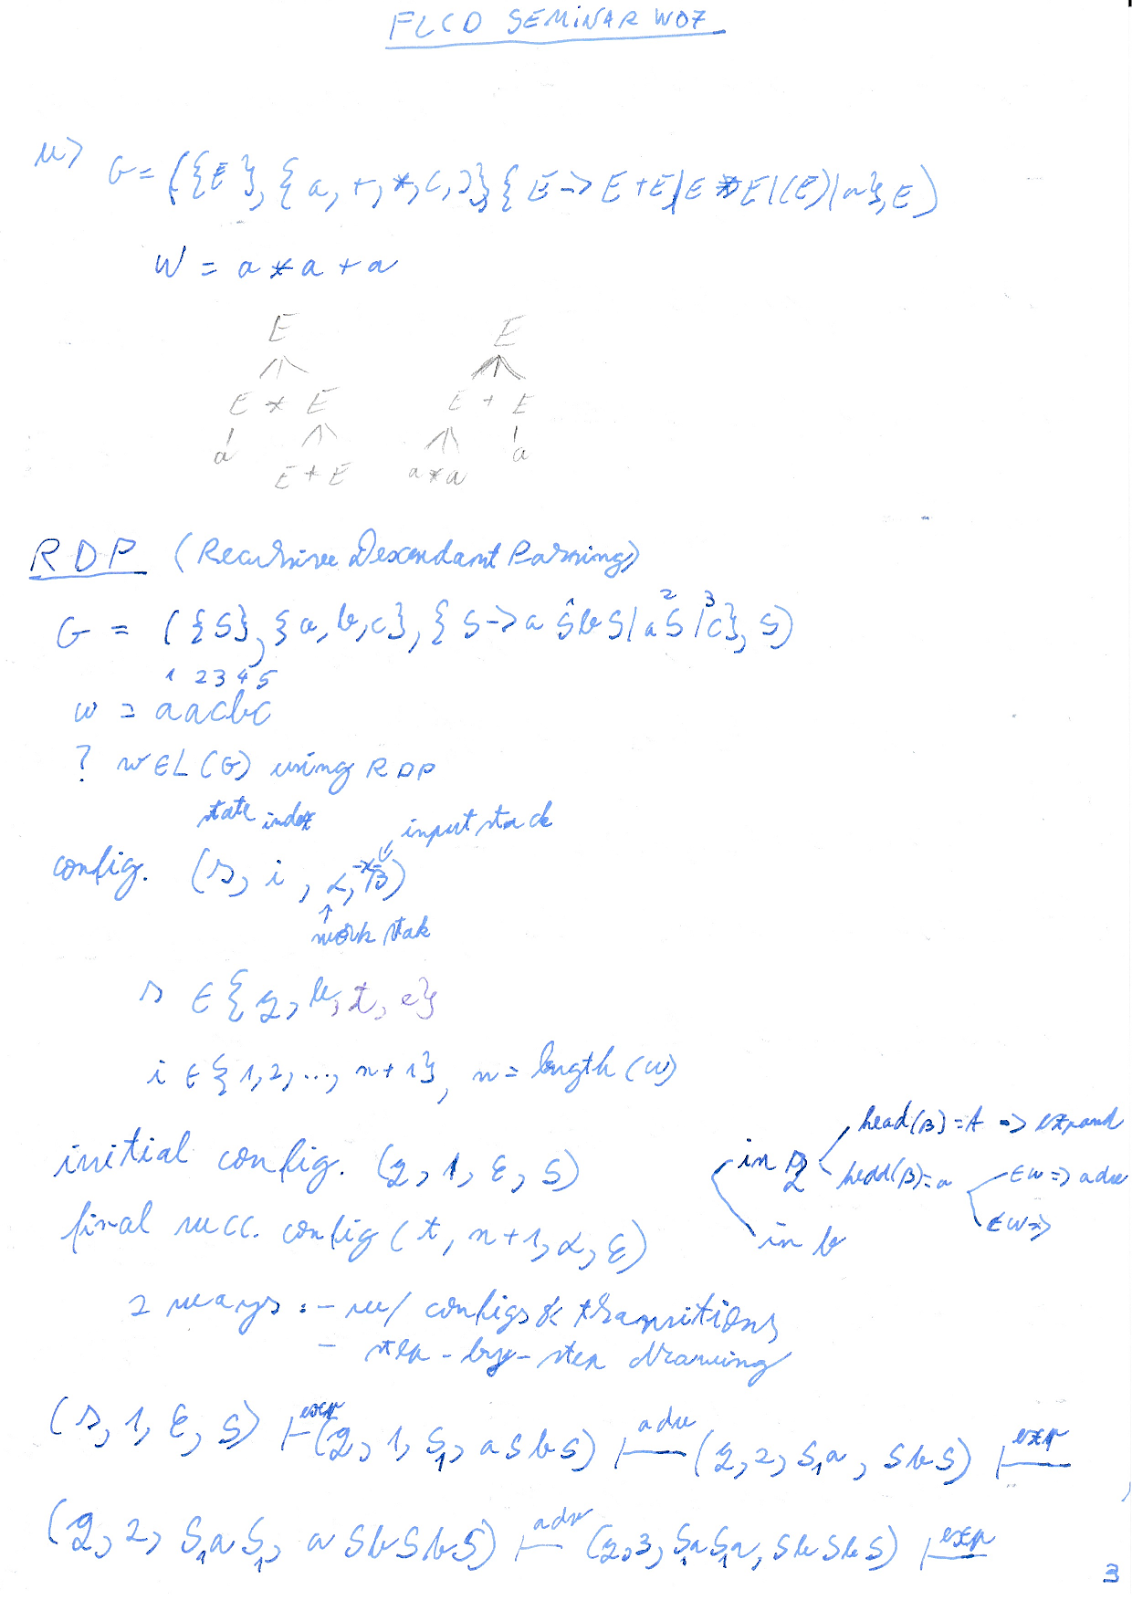 FLCD SEMINAR W07
u> G = ({E}, {a, +, *, (, )}{ E -> E + E | E * E | (E) | a}, E)
W = a * a + a
E E
E * E E + E
a E + E a * a a
RDP (Recursive Descendant Parsing)
G = ({S}, {a, b, c}, {S -> a S b S | a S | c}, S)
1 2 3
1 2 3 4 5
w = aacbc
? w ∈ L(G) using RDP
state index input stack
config. (s, i, α, β)
work stak
s ∈ {q, b, t, e}
i ∈ {1, 2, ..., n+1}, n = length (w)
head(β) = A => expand
initial config. (q, 1, ε, S) in q head(β) = a ∈ w => adv
final succ. config (t, n+1, α, ε) in b ∈ w =>
2 ways : - w/ configs & transitions
- step - by - step drawing
(s, 1, ε, S) ⊢exp (q, 1, S₁, a S b S) ⊢adv (q, 2, S₁a, S b S) ⊢exp
(q, 2, S₁aS₁, a S b S b S) ⊢adv (q, 3, S₁aS₁a, S b S b S) ⊢exp
3